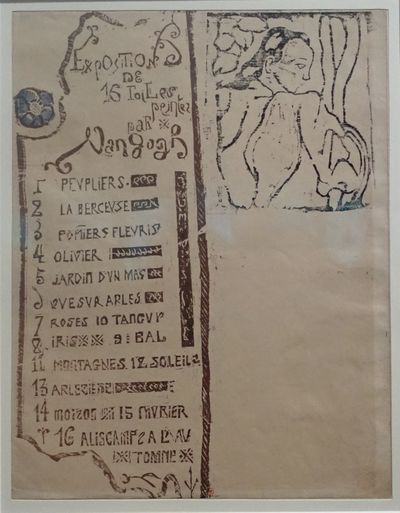 EXPOSITION
DE
16 TOILES
PEINTES
PAR
VanGogh
1 PEUPLIERS.
2 LA BERCEUSE
3 POMIERS FLEURIS
4 OLIVIER
5 JARDIN D'UN MAS
6 VUE SUR ARLES
7 ROSES 10 TANGUY
8 IRIS 9: BAL
11 MONTAGNES. 12 SOLEILS
13 ARLESIENE
14 MOISON 15 FÉVRIER
16 ALISCAMPS A L'AU
TOMNE